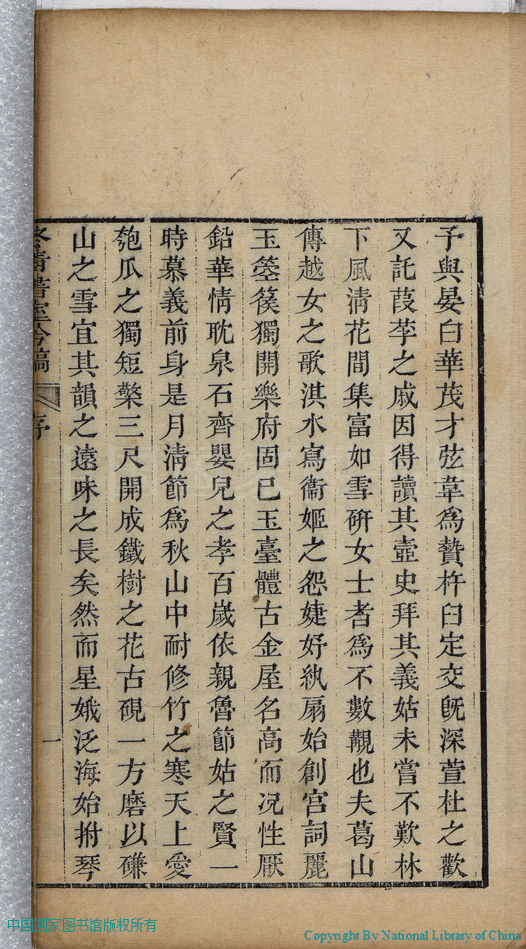 予與晏白華茂才弦韋為贄杵臼定交旣深萱杜之歡
又託葭莩之戚因得讀其壼史拜其義姑未嘗不歎林
下風淸花間集富如雪研女士者為不數覯也夫葛山
傳越女之歌淇水寫衞姬之怨婕妤紈扇始創宮詞麗
玉箜篌獨開樂府固已玉臺體古金屋名高而况性厭
鉛華情耽泉石齊嬰兒之孝百歲依親魯節姑之賢一
時慕義前身是月淸節為秋山中耐修竹之寒天上愛
匏瓜之獨短檠三尺開成鐵樹之花古硯一方磨以磏
山之雪宜其韻之遠味之長矣然而星娥泛海始拊琴
冬靑書室吟稿
序
一
中国国家图书馆版权所有
Copyright By National Library of China